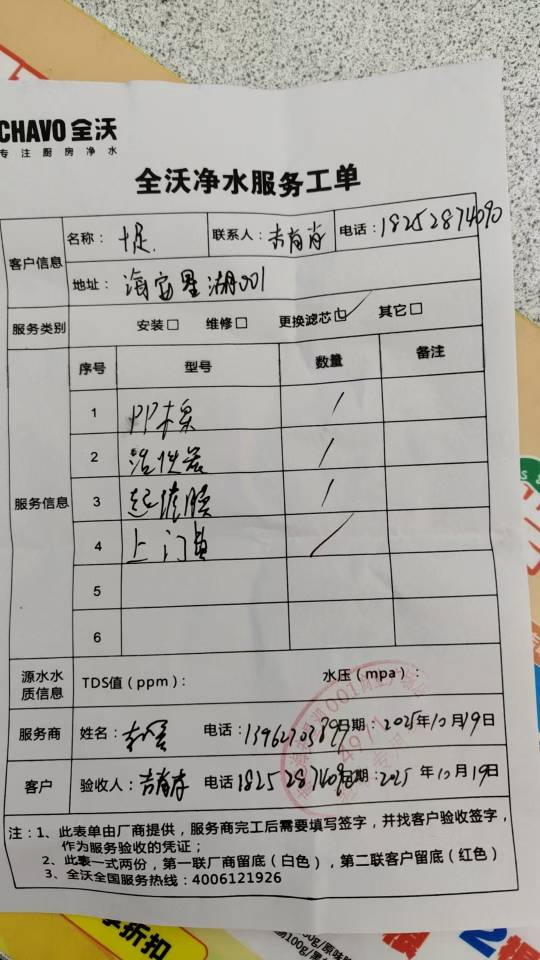 CHAVO 全沃
专注厨房净水
全沃净水服务工单
客户信息
名称：十足 联系人：吉 电话：18252874090
地址：海 星湖001
服务类别 安装□ 维修□ 更换滤芯☑ 其它□
服务信息
序号 型号 数量 备注
1 PP棉 1
2 活性炭 1
3 超滤膜 1
4 上门费 1
5
6
源水水质信息 TDS值（ppm）： 水压（mpa）：
服务商 姓名： 电话： 日期：2025年10月19日
客户 验收人：吉 电话 18252874090 日期：2025年10月19日
注：1、此表单由厂商提供，服务商完工后需要填写签字，并找客户验收签字，
作为服务验收的凭证；
2、此表一式两份，第一联厂商留底（白色），第二联客户留底（红色）
3、全沃全国服务热线：4006121926
折扣